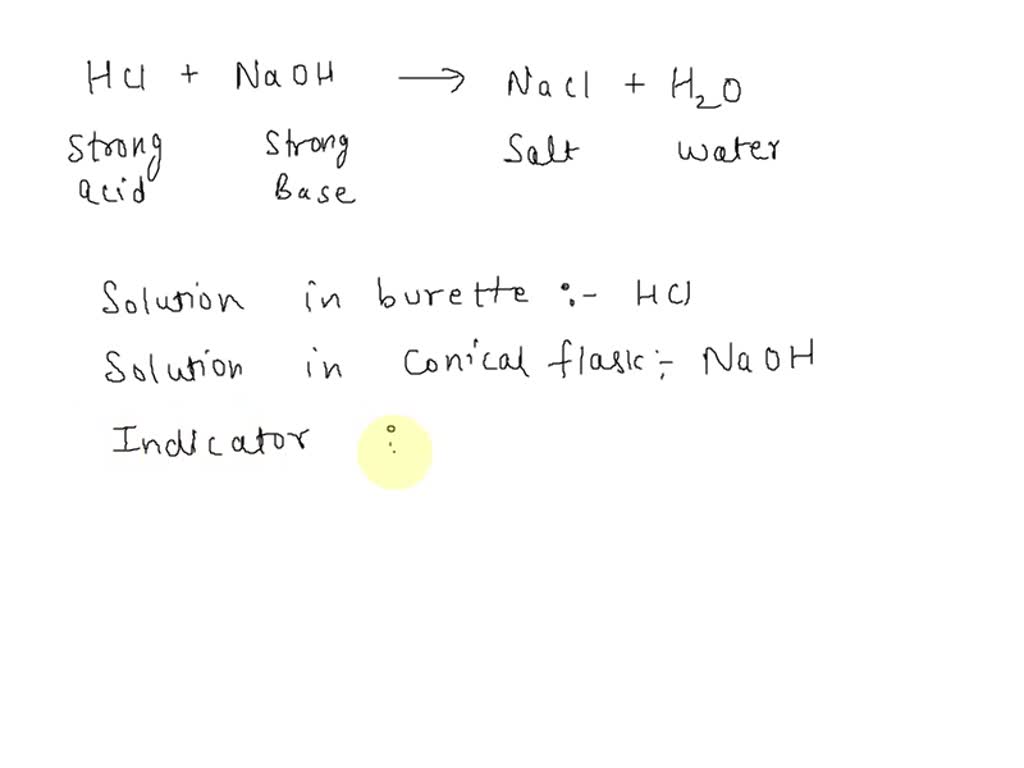 HCl + NaOH → NaCl + H₂O
Strong acid Strong Base Salt water
Solution in burette :- HCl
Solution in Conical flask :- NaOH
Indicator :